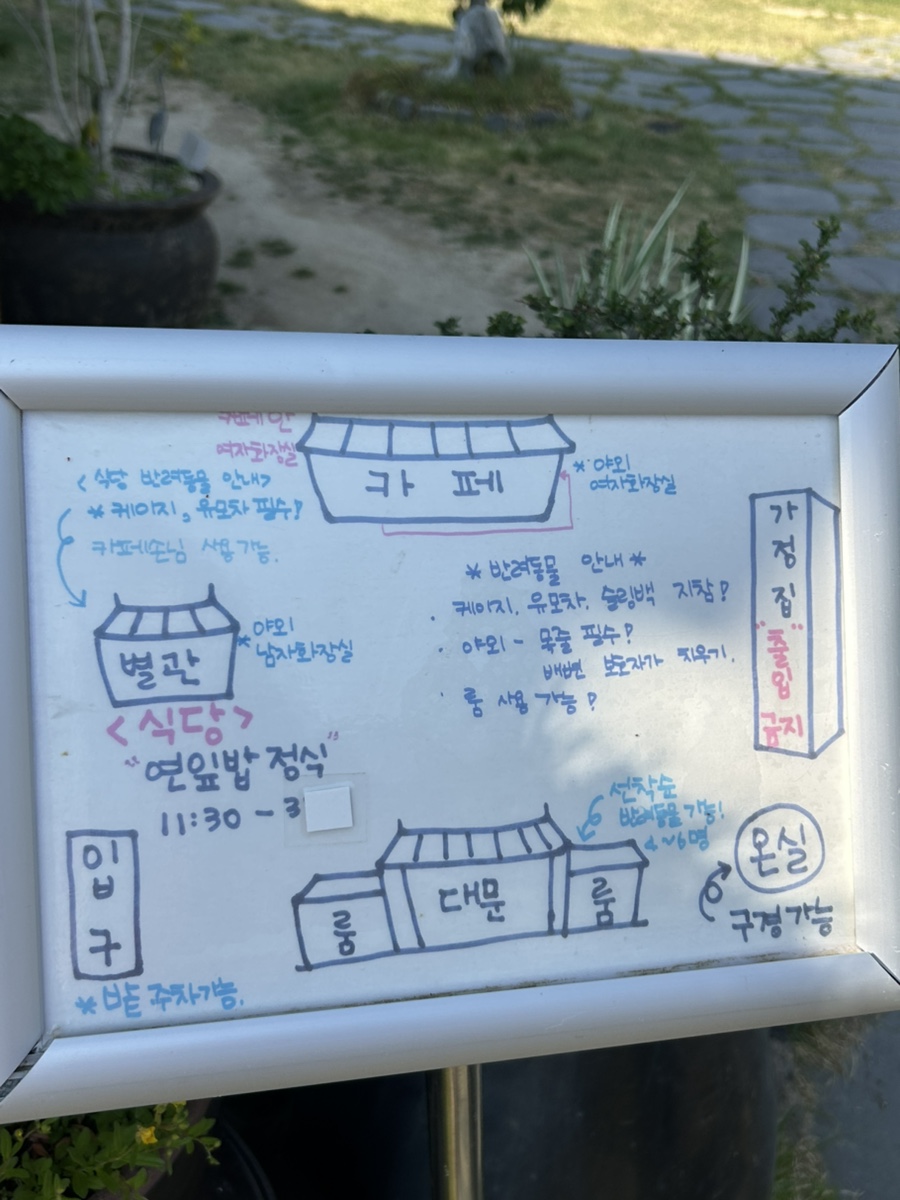 카페 안
여자화장실
카페
* 야외
여자화장실
<식당 반려동물 안내>
* 케이지, 유모차 필수!
카페손님 사용가능.
별관
* 야외
남자화장실
<식당>
"연잎밥 정식"
11:30 - 3
* 반려동물 안내 *
· 케이지, 유모차, 슬링백 지참!
· 야외 - 목줄 필수!
배변 보호자가 치우기.
· 룸 사용 가능!
가정집
"출입
금지
입구
* 밭 주차가능.
룸
대문
룸
선착순
반려동물 가능!
4~6명
온실
구경가능